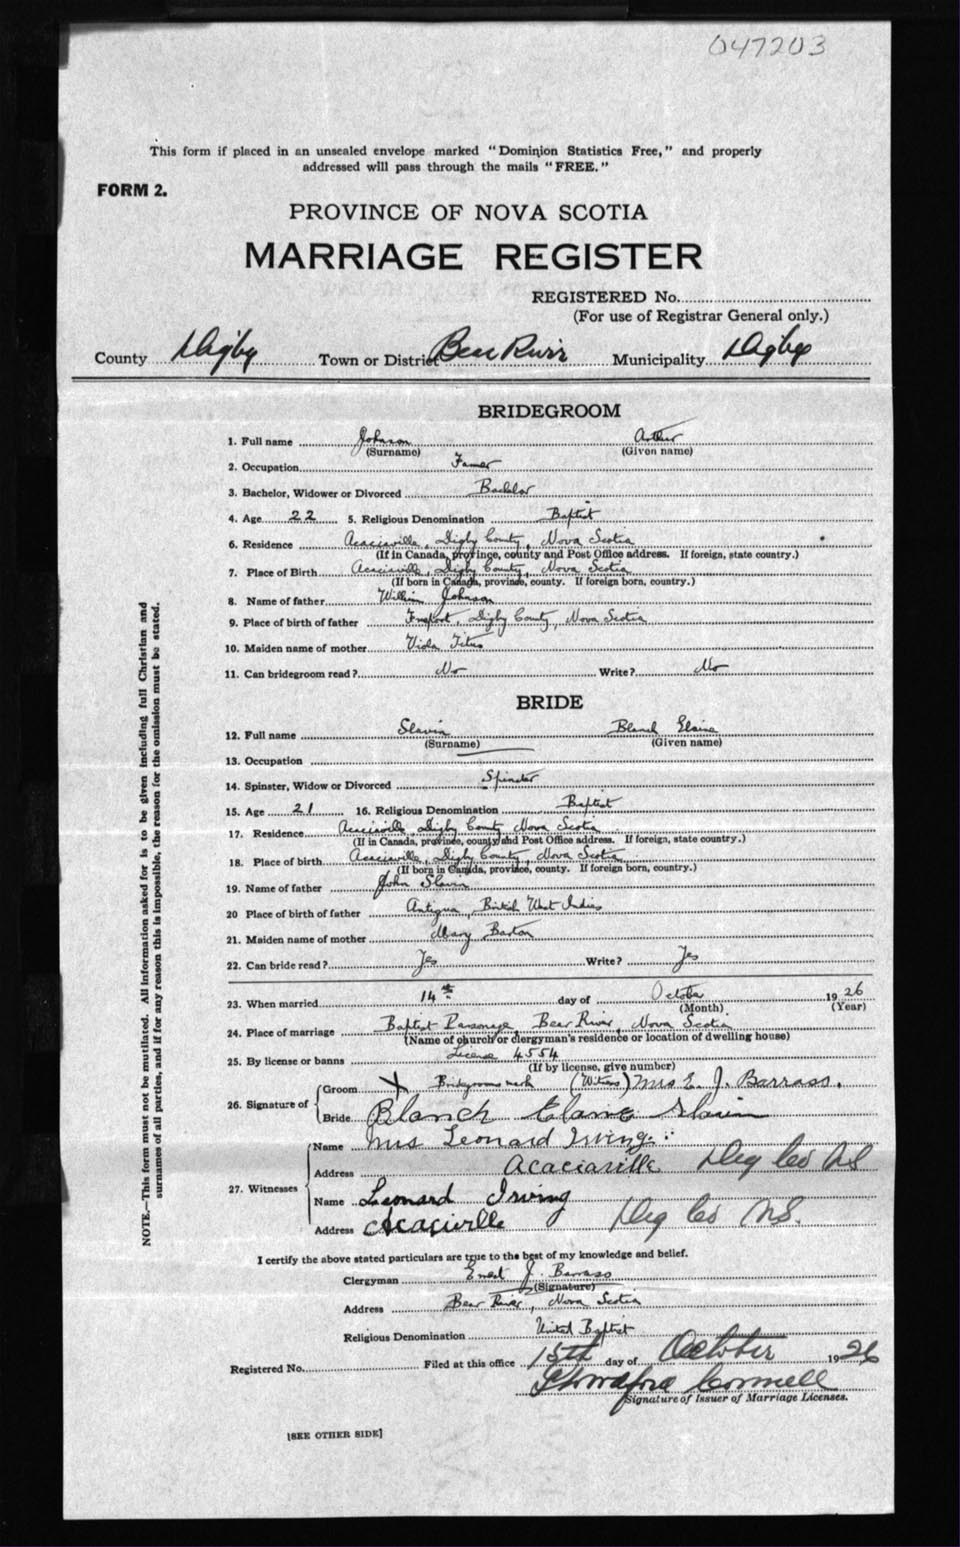 047203
This form if placed in an unsealed envelope marked "Dominion Statistics Free," and properly
addressed will pass through the mails "FREE."
FORM 2.
PROVINCE OF NOVA SCOTIA
MARRIAGE REGISTER
REGISTERED No.
(For use of Registrar General only.)
County Digby Town or District Bear River Municipality Digby
BRIDEGROOM
1. Full name Johnson Arthur
(Surname) (Given name)
2. Occupation Farmer
3. Bachelor, Widower or Divorced Bachelor
4. Age 22 5. Religious Denomination Baptist
6. Residence Acaciaville, Digby County, Nova Scotia
(If in Canada, province, county and Post Office address. If foreign, state country.)
7. Place of Birth Acaciaville, Digby County, Nova Scotia
(If born in Canada, province, county. If foreign born, country.)
8. Name of father William Johnson
9. Place of birth of father Freeport, Digby County, Nova Scotia
10. Maiden name of mother Viola Titus
11. Can bridegroom read? No Write? No
BRIDE
12. Full name Slavin Blanch Elaine
(Surname) (Given name)
13. Occupation
14. Spinster, Widow or Divorced Spinster
15. Age 21 16. Religious Denomination Baptist
17. Residence Acaciaville, Digby County, Nova Scotia
(If in Canada, province, county and Post Office address. If foreign, state country.)
18. Place of birth Acaciaville, Digby County, Nova Scotia
(If born in Canada, province, county. If foreign born, country.)
19. Name of father John Slavin
20 Place of birth of father Antigua, British West Indies
21. Maiden name of mother Mary Barton
22. Can bride read? Yes Write? Yes
23. When married 14th day of October 1926
(Month) (Year)
24. Place of marriage Baptist Parsonage, Bear River, Nova Scotia
(Name of church or clergyman's residence or location of dwelling house)
25. By license or banns License 4554
(If by license, give number)
26. Signature of Groom X Bridegrooms mark (Witness) Mrs E. J. Barrass.
Bride Blanch Elaine Slavin
27. Witnesses Name Mrs Leonard Irving.
Address Acaciaville Dig Co NS
Name Leonard Irving
Address Acaciville Dig Co NS.
NOTE.—This form must not be mutilated. All information asked for is to be given including full Christian and
surnames of all parties, and if for any reason this is impossible, the reason for the omission must be stated.
I certify the above stated particulars are true to the best of my knowledge and belief.
Clergyman Ernest J. Barrass
(Signature)
Address Bear River, Nova Scotia
Religious Denomination United Baptist
Registered No. Filed at this office 15th day of October 1926
Cornwell
Signature of Issuer of Marriage Licenses.
[SEE OTHER SIDE]